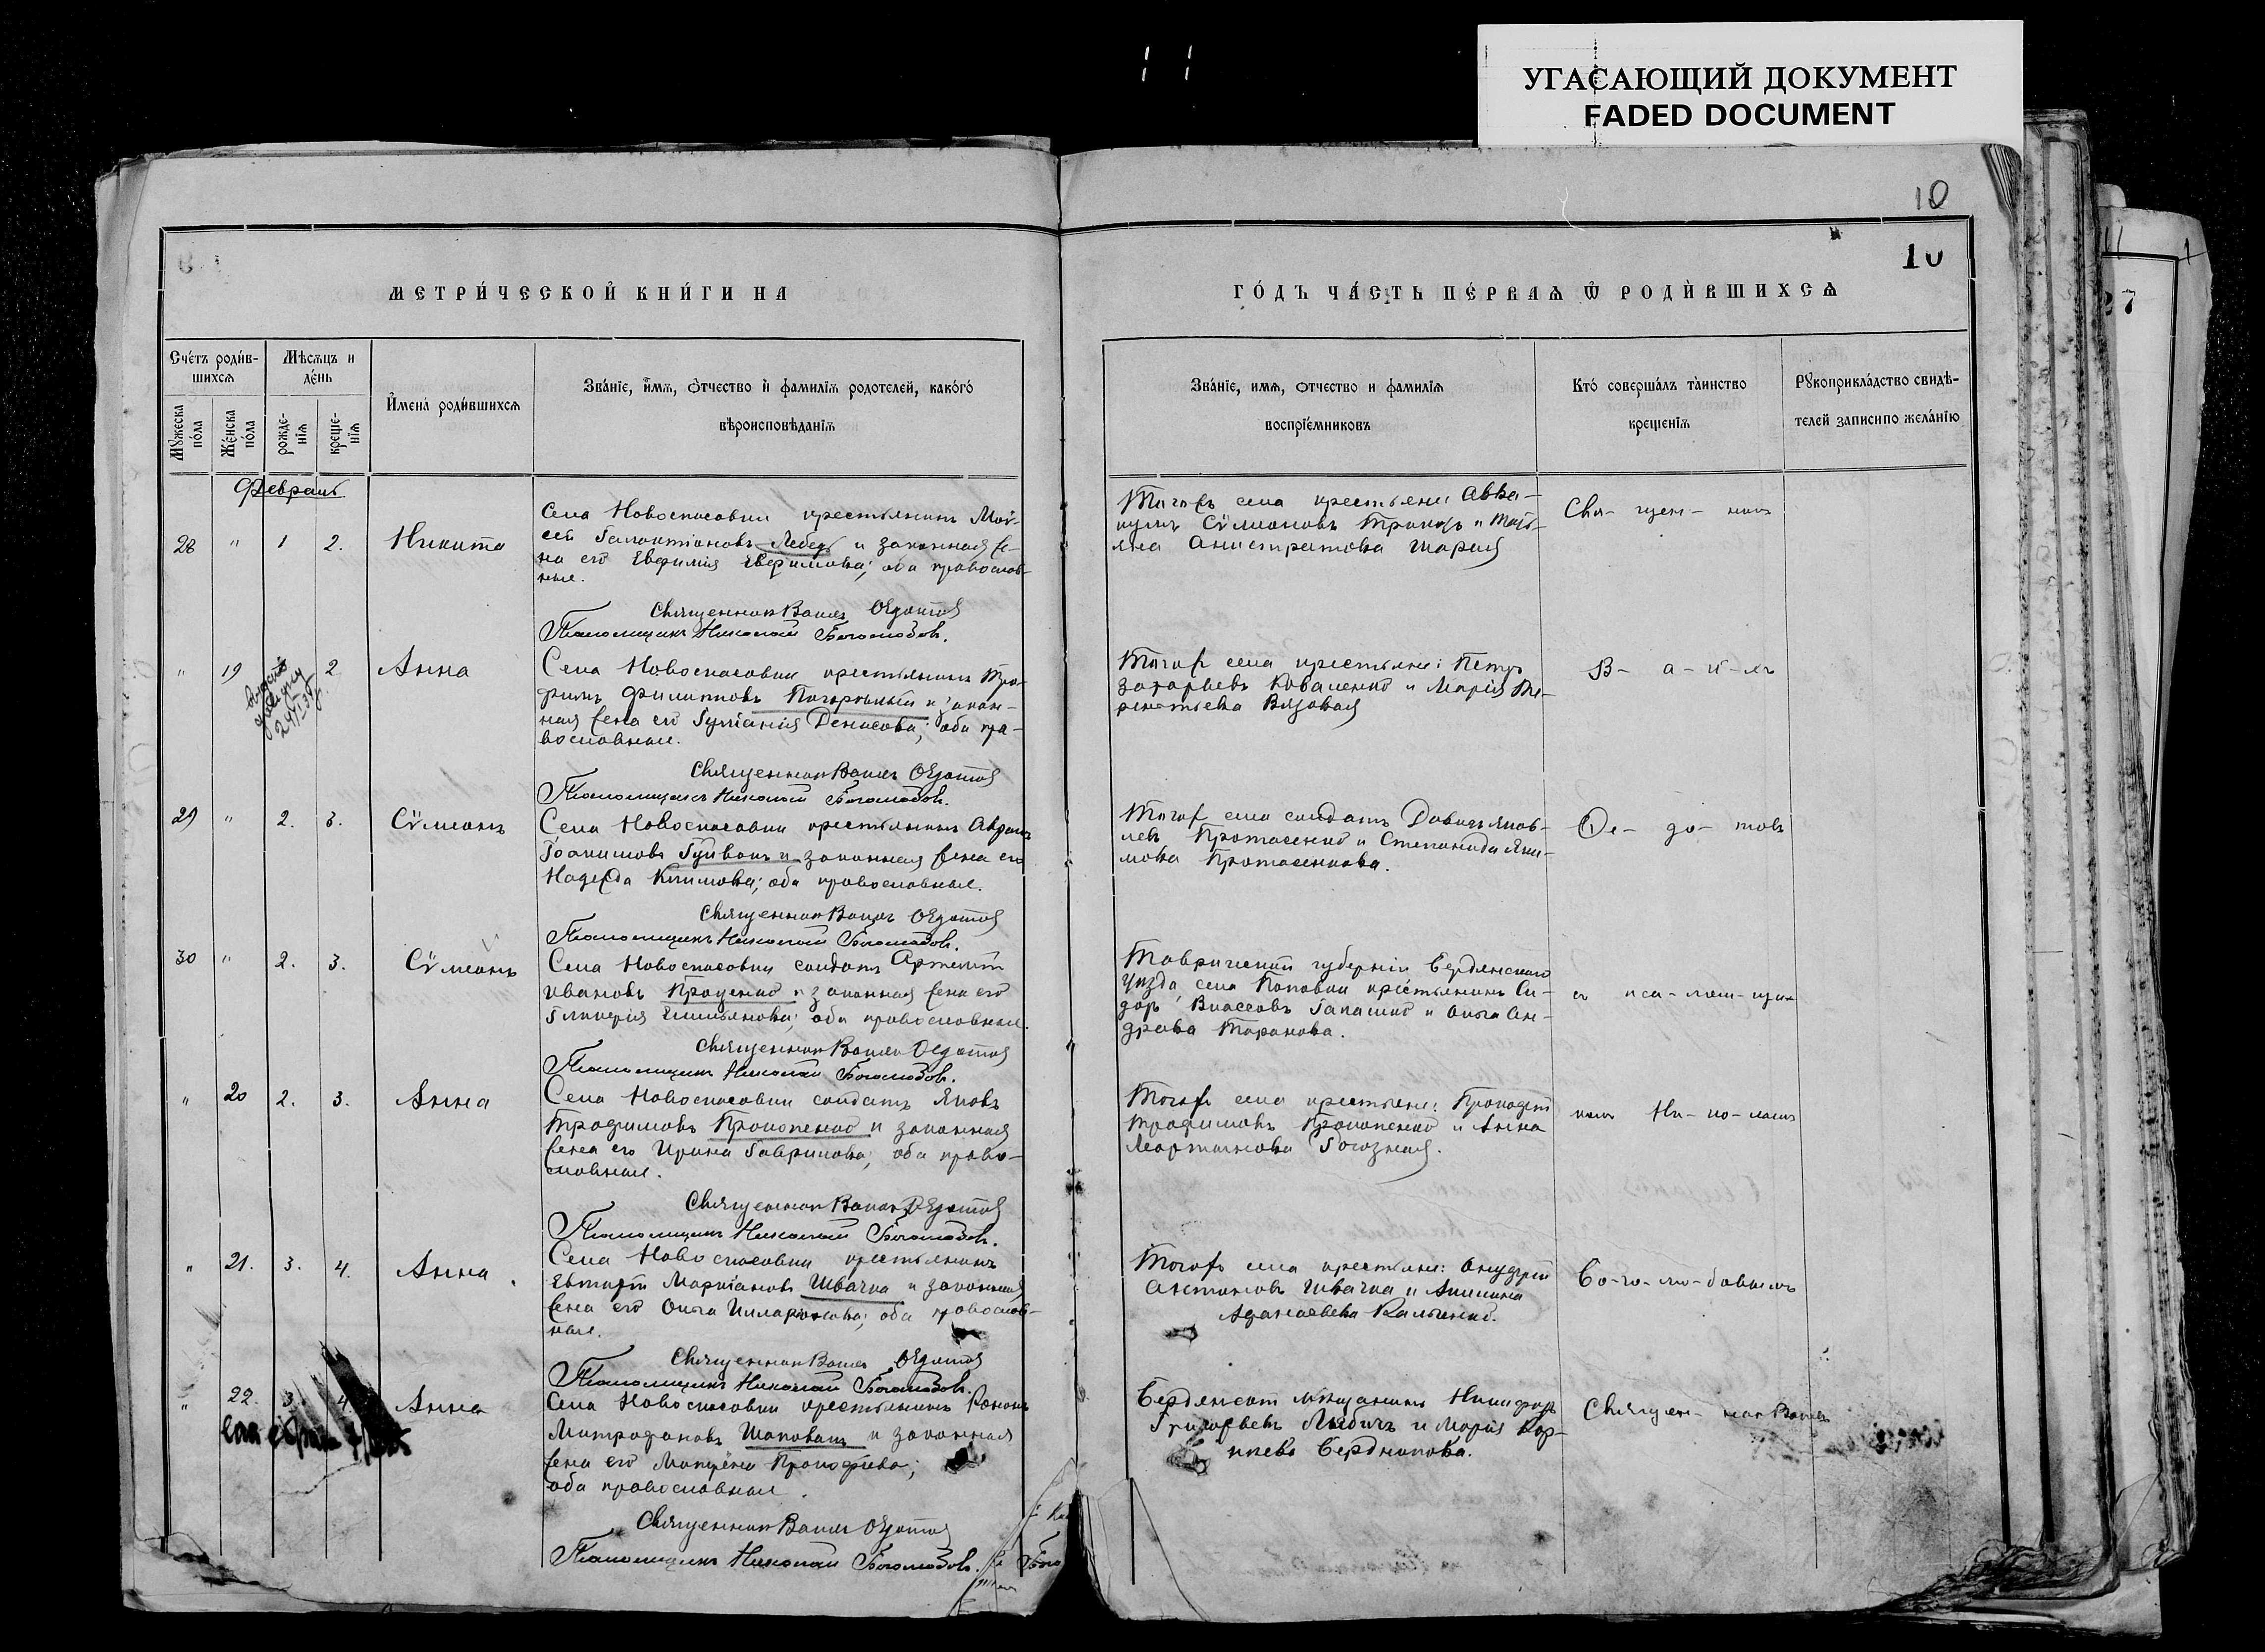 УГАСАЮЩИЙ ДОКУМЕНТ
FADED DOCUMENT
10
10
МЕТРИ́ЧЕСКОЙ КНИ́ГИ НА
ГО́ДЪ ЧА́СТЬ ПЕ́РВАѦ Ѽ РОДИ́ВШИХСѦ
Сче́тъ роди́в-
шихсѧ
Мꙋжеска
по́ла
Же́нска
по́ла
Мѣсѧцъ и
де́нь
рожде-
нїѧ
креще-
нїѧ
И҆мена̀ роди́вшихсѧ
Зва́нїе, и҆́мѧ, ѻ҆́тчество и҆ фами́лїѧ родотелей, како́гѡ
вѣроисповѣ́данїѧ
Зва́нїе, имѧ, отчество и фамилїѧ
воспрїе́мниковъ
Кто́ соверша́лъ та̀инство
крещенїѧ
Рꙋкоприкла́дство свидѣ́-
телей записи по жела́нїю
Февраль
28 " 1 2. Никита
Села Новоспасовки крестьянинъ Мои-
сей Галактіоновъ Лебедь и законная же-
на его Евфимія Ефимова; оба православ-
ные.
Священникъ Ваилъ Ѳедотовъ
Псаломщикъ Николай Боголюбовъ.
Тогожъ села крестьяне: Авва-
кумъ Сѵмеоновъ и Тать-
яна Анистратова
Свя- щен- никъ
" 19 2 Анна
Села Новоспасовки крестьянинъ Тро-
фимъ Филиповъ Погорѣлый и закон-
ная жена его Іуліанія Денисова; оба пра-
вославные.
Священникъ Ваилъ Ѳедотовъ
Псаломщикъ Николай Боголюбовъ.
Тогожъ села крестьяне: Петръ
Захарьевъ Коваленко и Марія Те-
рентьева Вязовая
В- а- и- лъ
29 " 2. 3. Сѵмеонъ
Села Новоспасовки крестьянинъ Аврамъ
Іоакимовъ Гуйванъ и законная жена его
Надежда Климова; оба православные.
Священникъ Ваилъ Ѳедотовъ
Псаломщикъ Николай Боголюбовъ.
Тогожъ села солдатъ Давидъ Яков-
левъ Протасенко и Степанида Яки-
мова Протасенкова.
Ѳе- до- товъ
30 " 2. 3. Сѵмеонъ
Села Новоспасовки солдатъ Артемій
Ивановъ Проценко и законная жена его
Гликерія Емельянова; оба православные.
Священникъ Ваилъ Ѳедотовъ
Псаломщикъ Николай Боголюбовъ.
Таврической губерніи Бердянскаго
уѣзда, села Поповки крестьянинъ Си-
доръ Власовъ и Ольга Ан-
дреева Таранова.
съ пса- лом- щи-
" 20 2. 3. Анна
Села Новоспасовки солдатъ Яковъ
Трофимовъ Прокопенко и законная
жена его Ирина Гаврилова; оба право-
славные.
Священникъ Ваилъ Ѳедотовъ
Псаломщикъ Николай Боголюбовъ.
Тогожъ села крестьяне:
Трофимовъ Прокопенко и Анна
Мартынова Рогозная.
комъ Ни- ко- лаемъ
" 21. 3. 4. Анна
Села Новоспасовки крестьянинъ
Евтихій Маркіановъ Швачка и законная
жена его Ольга Илларіонова; оба православ-
ные.
Священникъ Ваилъ Ѳедотовъ
Псаломщикъ Николай Боголюбовъ.
Тогожъ села крестьяне: Онуфрій
Антоновъ Швачка и Акилина
Афанасьева Кальченко.
Бо- го- лю- бовымъ
" 22. 3. 4. Анна
Села Новоспасовки крестьянинъ
Митрофановъ Шаповалъ и законная
жена его Прокофьева;
оба православные.
Священникъ Ваилъ Ѳедотовъ
Псаломщикъ Николай Боголюбовъ.
Бердянскій мѣщанинъ Никифоръ
Григорьевъ и Марія Кар-
пнева Бердникова.
Священ- никъ Ваилъ